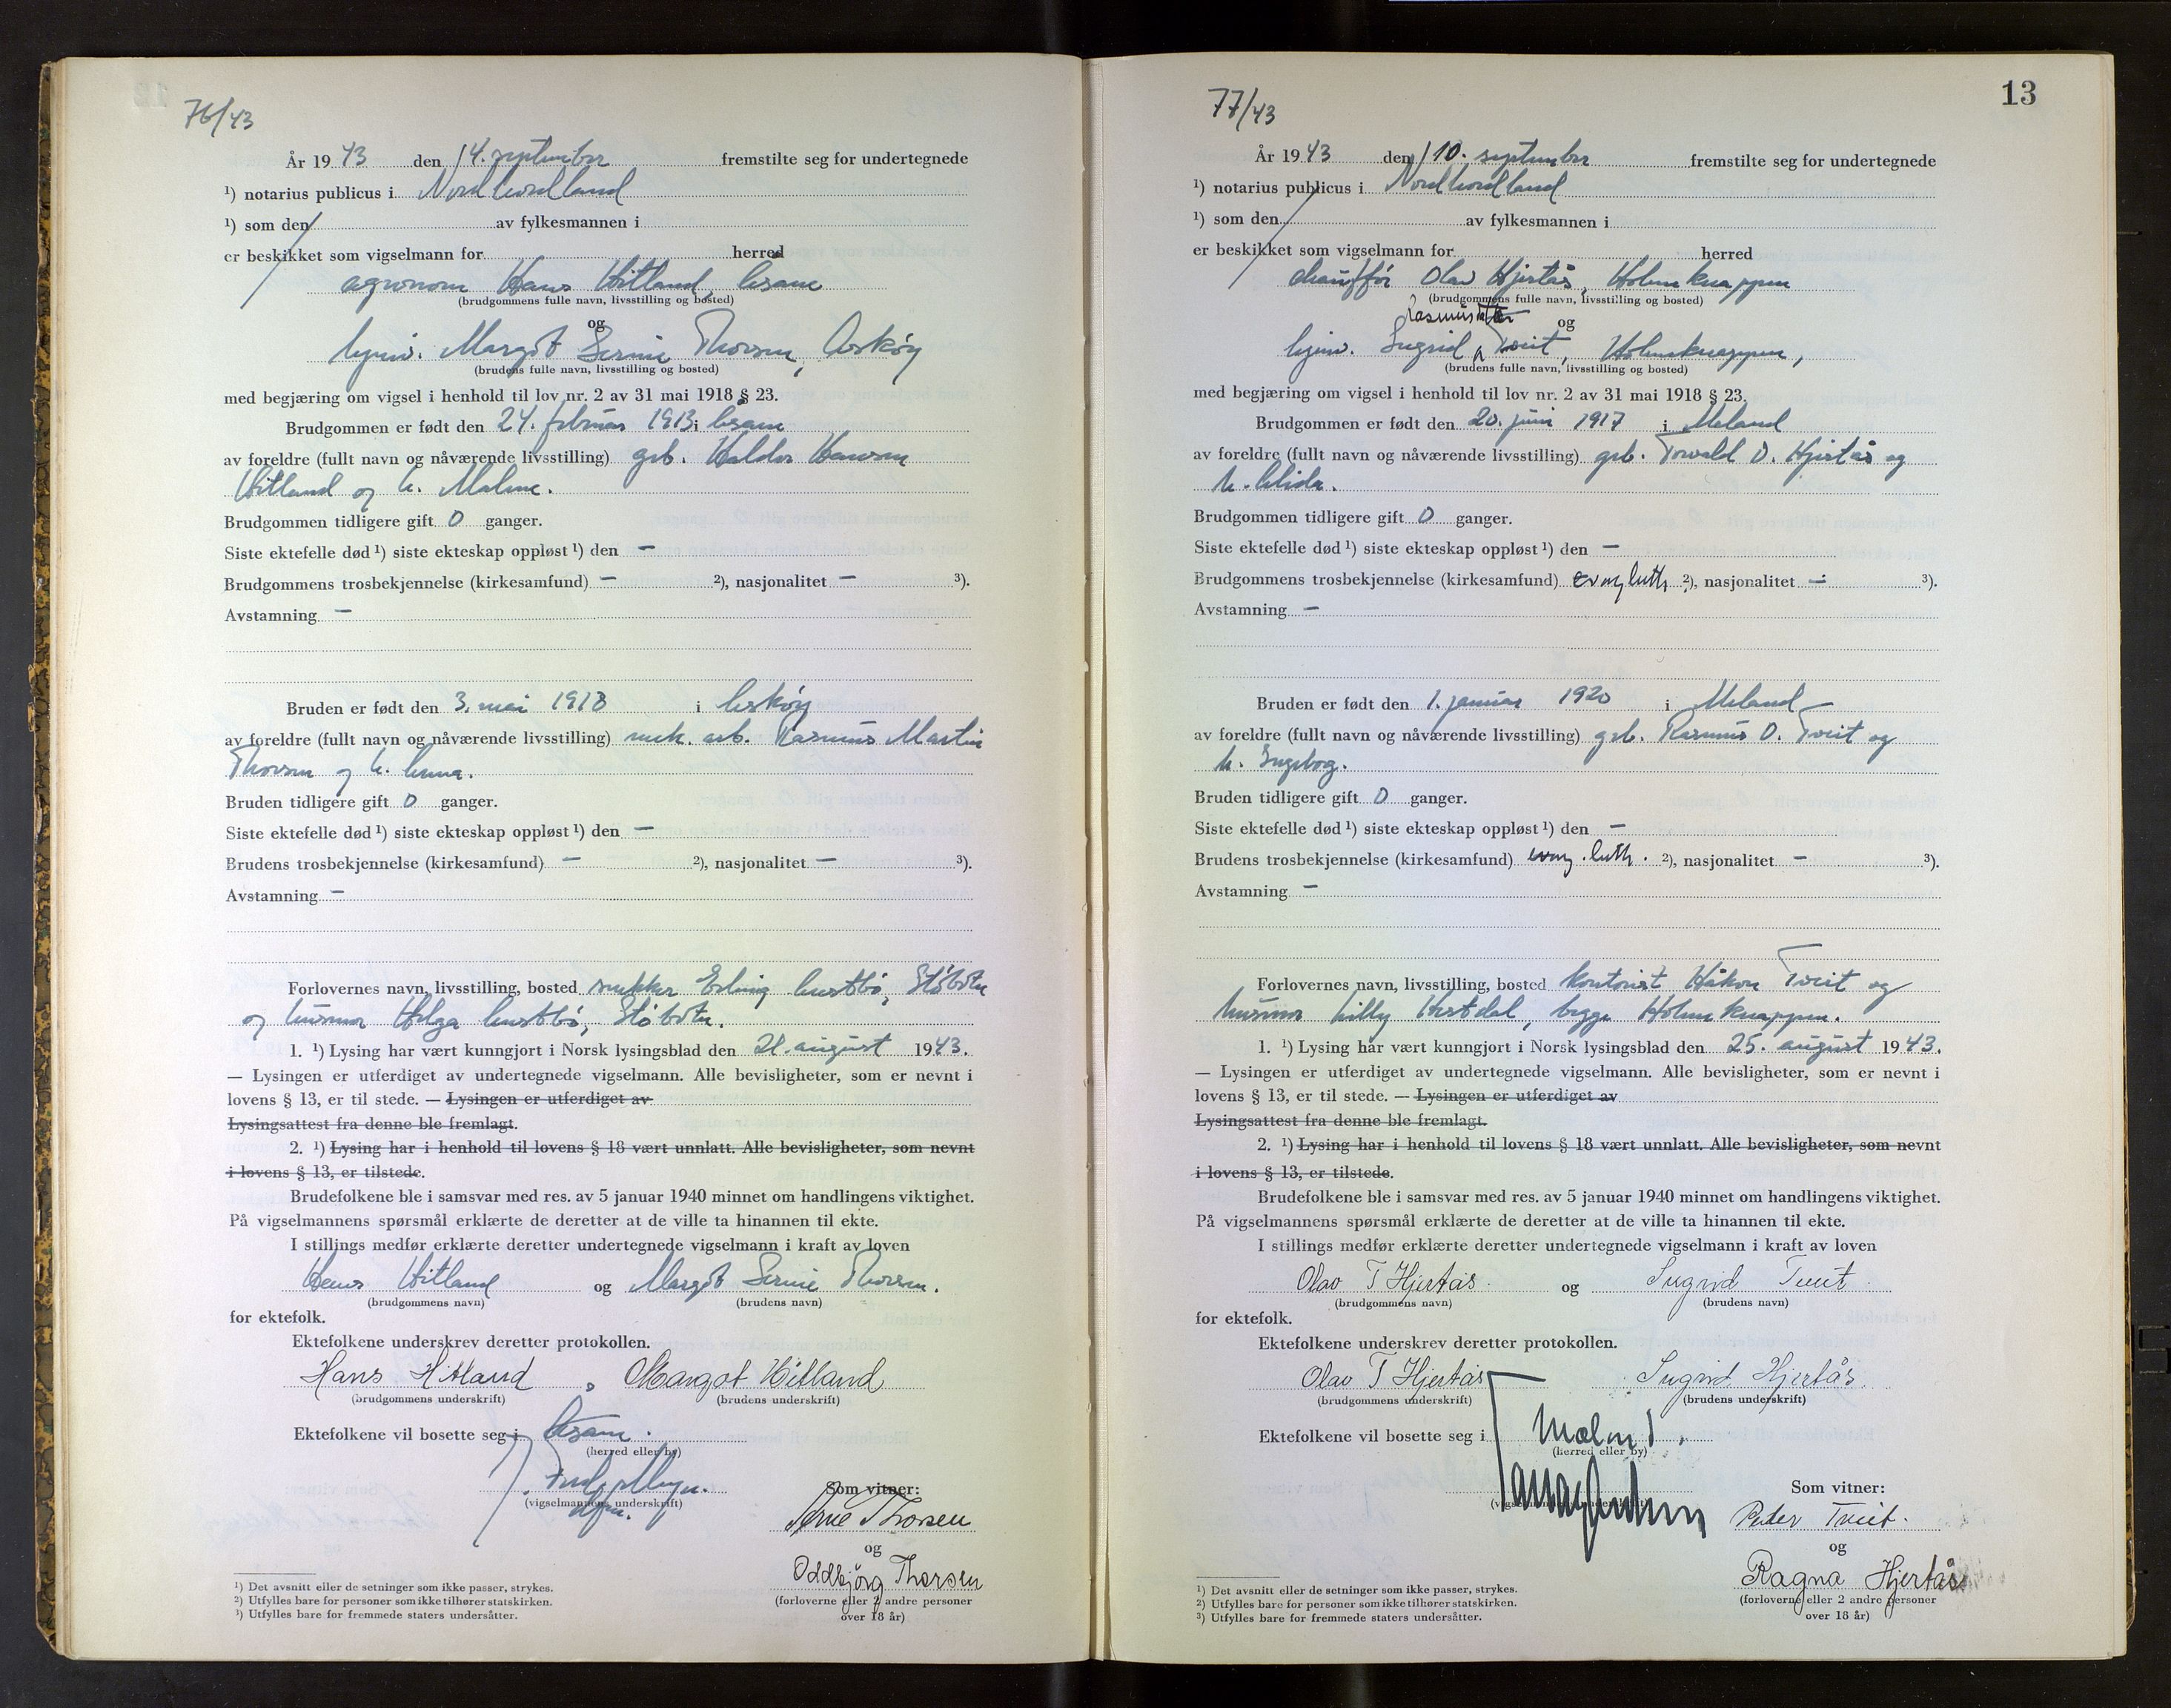 76/43
År 1943 den 14. september fremstilte seg for undertegnede
¹) notarius publicus i Nordhordland
¹) som den av fylkesmannen i
er beskikket som vigselmann for herred
agronom Hans Hitland, Åsane
(brudgommens fulle navn, livsstilling og bosted)
og
hjemv. Margot Serine Thorsen, Askøy
(brudens fulle navn, livsstilling og bosted)
med begjæring om vigsel i henhold til lov nr. 2 av 31 mai 1918 § 23.
Brudgommen er født den 24. februar 1913 i Åsane
av foreldre (fullt navn og nåværende livsstilling) grb. Haldor Hansen
Hitland og h. Malene.
Brudgommen tidligere gift 0 ganger.
Siste ektefelle død ¹) siste ekteskap oppløst ¹) den —
Brudgommens trosbekjennelse (kirkesamfund) — ²), nasjonalitet — ³).
Avstamning —
Bruden er født den 3. mai 1918 i Askøy
av foreldre (fullt navn og nåværende livsstilling) mek. arb. Rasmus Martin
Thorsen og h. Anna.
Bruden tidligere gift 0 ganger.
Siste ektefelle død ¹) siste ekteskap oppløst ¹) den —
Brudens trosbekjennelse (kirkesamfund) — ²), nasjonalitet — ³).
Avstamning —
Forlovernes navn, livsstilling, bosted snekker Erling Austbø,
og husmor Helga Austbø,
1. ¹) Lysing har vært kunngjort i Norsk lysingsblad den 21. august 1943.
— Lysingen er utferdiget av undertegnede vigselmann. Alle bevisligheter, som er nevnt i
lovens § 13, er til stede. — Lysingen er utferdiget av
Lysingsattest fra denne ble fremlagt.
2. ¹) Lysing har i henhold til lovens § 18 vært unnlatt. Alle bevisligheter, som nevnt
i lovens § 13, er tilstede.
Brudefolkene ble i samsvar med res. av 5 januar 1940 minnet om handlingens viktighet.
På vigselmannens spørsmål erklærte de deretter at de ville ta hinannen til ekte.
I stillings medfør erklærte deretter undertegnede vigselmann i kraft av loven
Hans Hitland og Margot Serine Thorsen.
(brudgommens navn) (brudens navn)
for ektefolk.
Ektefolkene underskrev deretter protokollen.
Hans Hitland , Margot Hitland
(brudgommens underskrift) (brudens underskrift)
Ektefolkene vil bosette seg i Åsane.
(herred eller by)
(vigselmannens underskrift)
Som vitner:
Arne Thorsen
og
Oddbjörg Thorsen
(forloverne eller 2 andre personer
over 18 år)
¹) Det avsnitt eller de setninger som ikke passer, strykes.
²) Utfylles bare for personer som ikke tilhører statskirken.
³) Utfylles bare for fremmede staters undersåtter.
13
77/43
År 1943 den 10. september fremstilte seg for undertegnede
¹) notarius publicus i Nordhordland
¹) som den av fylkesmannen i
er beskikket som vigselmann for herred
chauffør Olav Hjertås, Holmeknappen
(brudgommens fulle navn, livsstilling og bosted)
og
hjemv. Ingrid Tveit, Holmeknappen,
(brudens fulle navn, livsstilling og bosted)
med begjæring om vigsel i henhold til lov nr. 2 av 31 mai 1918 § 23.
Brudgommen er født den 20. juni 1917 i Meland
av foreldre (fullt navn og nåværende livsstilling) grb. Torvald O. Hjertås og
h. Alida.
Brudgommen tidligere gift 0 ganger.
Siste ektefelle død ¹) siste ekteskap oppløst ¹) den —
Brudgommens trosbekjennelse (kirkesamfund) evang luth. ²), nasjonalitet — ³).
Avstamning —
Bruden er født den 1. januar 1920 i Meland
av foreldre (fullt navn og nåværende livsstilling) grb. Rasmus O. Tveit og
h. Ingeborg.
Bruden tidligere gift 0 ganger.
Siste ektefelle død ¹) siste ekteskap oppløst ¹) den —
Brudens trosbekjennelse (kirkesamfund) evang. luth. ²), nasjonalitet — ³).
Avstamning —
Forlovernes navn, livsstilling, bosted kontorist Håkon Tveit og
husmor Lilly begge Holmeknappen.
1. ¹) Lysing har vært kunngjort i Norsk lysingsblad den 25. august 1943.
— Lysingen er utferdiget av undertegnede vigselmann. Alle bevisligheter, som er nevnt i
lovens § 13, er til stede. — Lysingen er utferdiget av
Lysingsattest fra denne ble fremlagt.
2. ¹) Lysing har i henhold til lovens § 18 vært unnlatt. Alle bevisligheter, som nevnt
i lovens § 13, er tilstede.
Brudefolkene ble i samsvar med res. av 5 januar 1940 minnet om handlingens viktighet.
På vigselmannens spørsmål erklærte de deretter at de ville ta hinannen til ekte.
I stillings medfør erklærte deretter undertegnede vigselmann i kraft av loven
Olav T Hjertås og Ingrid Tveit
(brudgommens navn) (brudens navn)
for ektefolk.
Ektefolkene underskrev deretter protokollen.
Olav T Hjertås Ingrid Hjertås
(brudgommens underskrift) (brudens underskrift)
Ektefolkene vil bosette seg i
(herred eller by)
(vigselmannens underskrift)
Som vitner:
Peder Tveit.
og
Ragna Hjertås
(forloverne eller 2 andre personer
over 18 år)
¹) Det avsnitt eller de setninger som ikke passer, strykes.
²) Utfylles bare for personer som ikke tilhører statskirken.
³) Utfylles bare for fremmede staters undersåtter.